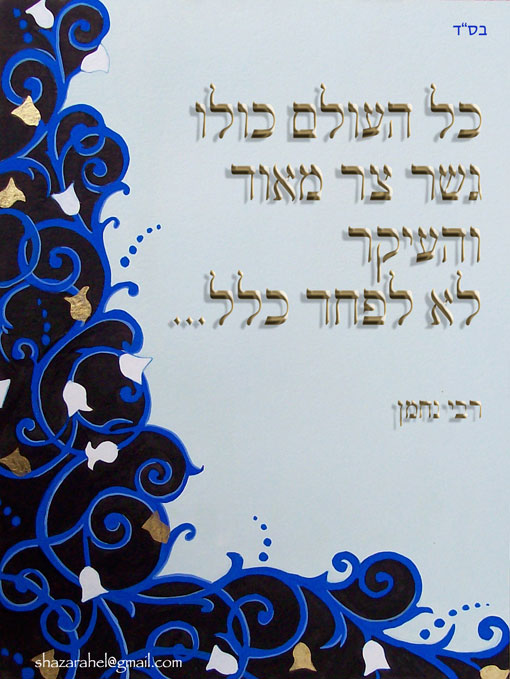 בס"ד
כל העולם כולו
גשר צר מאוד
והעיקר
לא לפחד כלל...
רבי נחמן
shazarahel@gmail.com